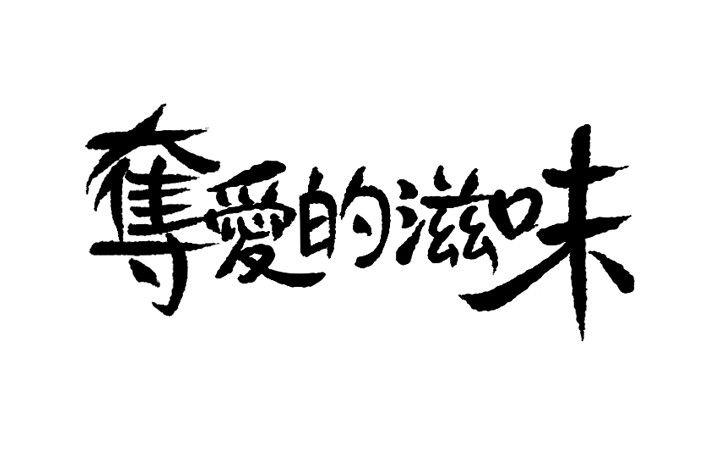 奪愛的滋味